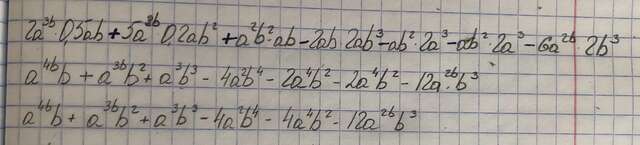 2a^3b · 0,5ab + 5a^3b · 0,2ab² + a²b² · ab - 2ab · 2ab³ - ab² · 2a³ - ab² · 2a³ - 6a^2b · 2b³
a^4b b + a^3b b² + a³b³ - 4a²b⁴ - 2a⁴b² - 2a⁴b² - 12a^2b · b³
a^4b b + a^3b b² + a³b³ - 4a²b⁴ - 4a⁴b² - 12a^2b b³